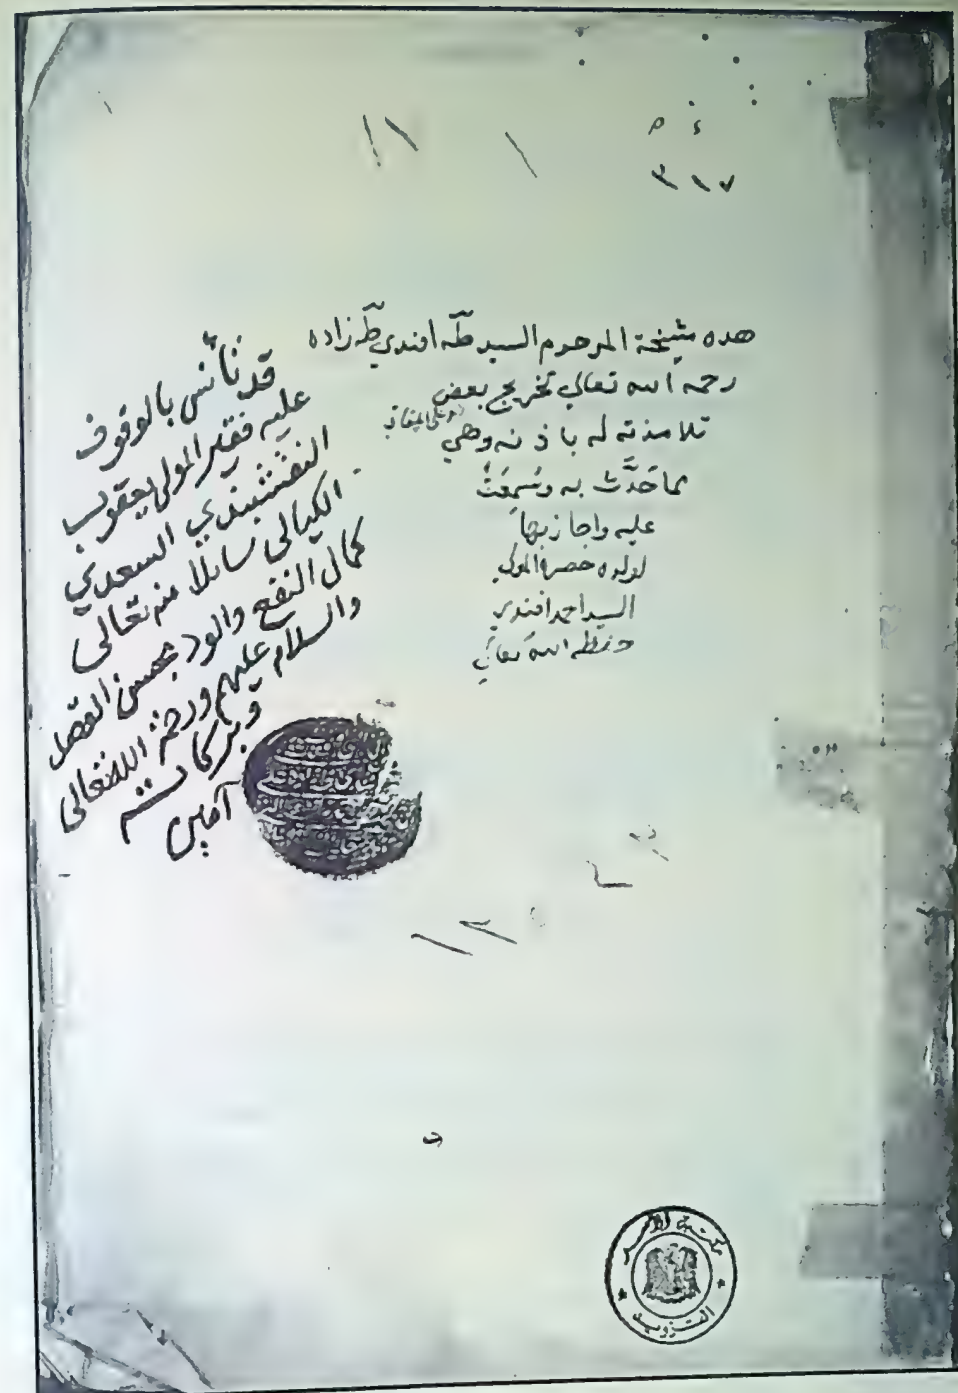 ء م
٣١٧
هذه مشيخة المرحوم السيد طه افندي طه زاده
رحمه الله تعالى تخريج بعض
تلامذته له باذنه وهي
مما حَدَّث به وسُمِعَتْ
عليه واجاز بها
لولده حضرة المولى
السيد احمد افندي
حفظه الله تعالى
قد تأنس بالوقوف
عليه فقير المولى يعقوب
النقشبندي السعدي
الكيالي سائلا منه تعالى
كمال النفع والود بمحسن الفضل
والسلام عليهم ورحمة الله تعالى
وبركاته
آمين
مكتبة الأسد
التزويد